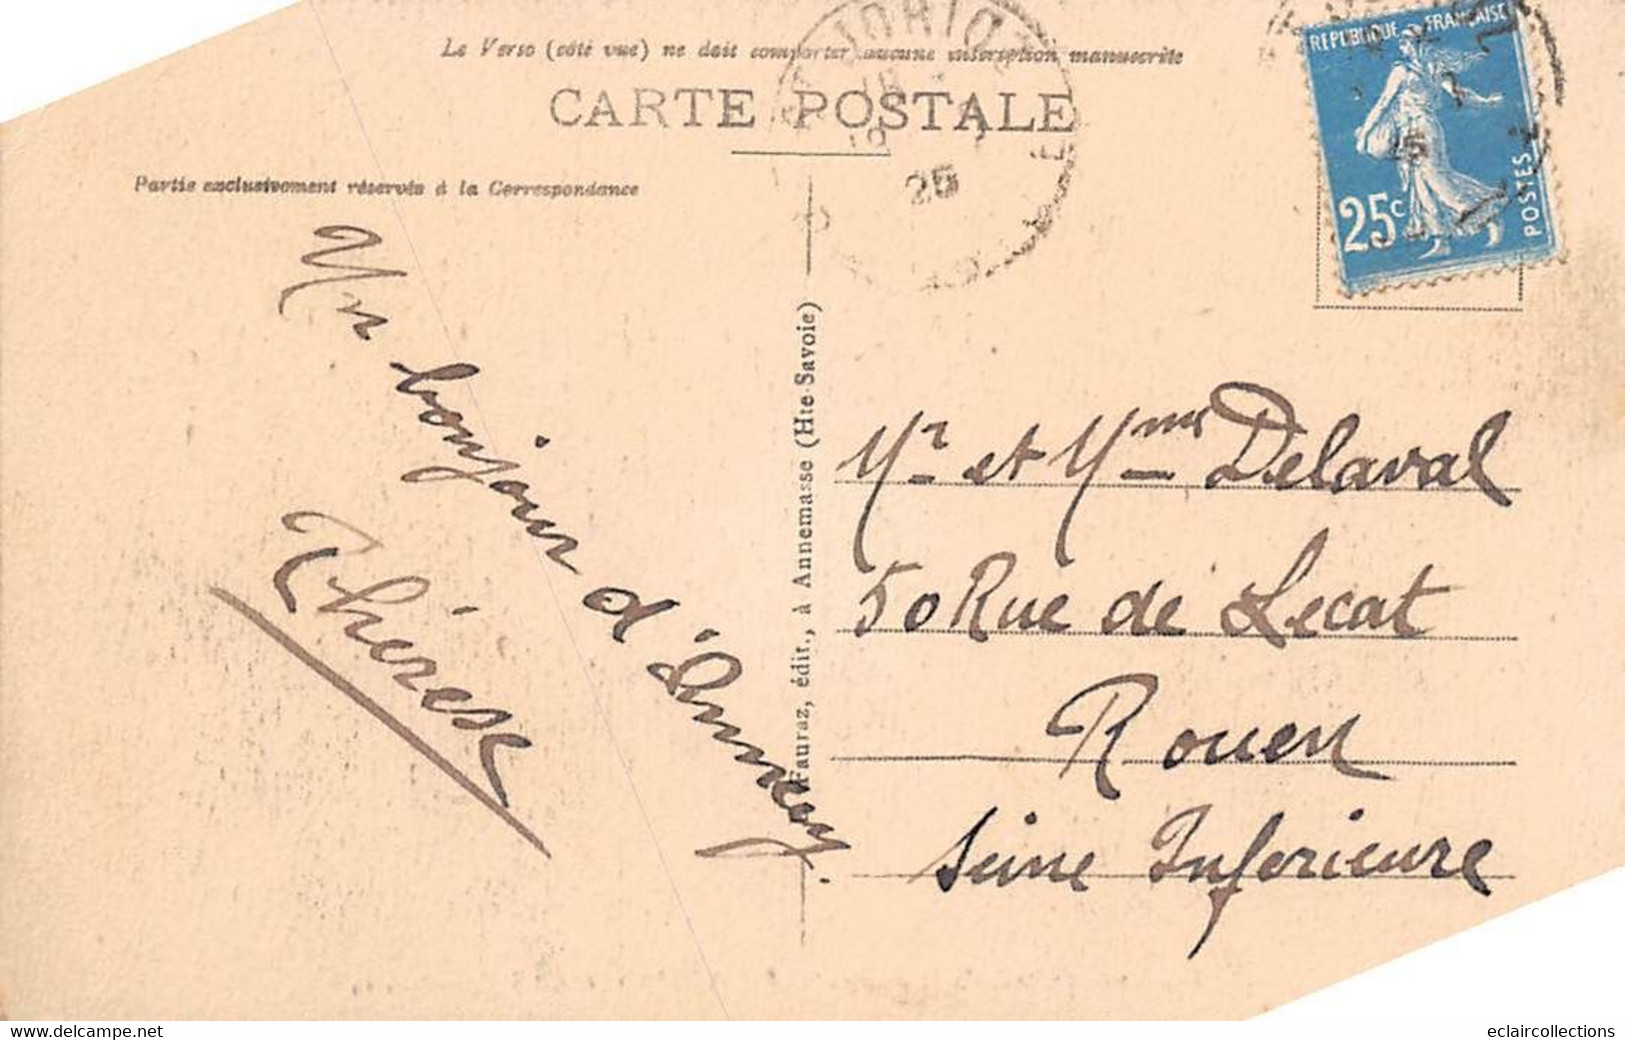 Le Verso (côté vue) ne doit comporter aucune inscription manuscrite
CARTE POSTALE
Partie exclusivement réservée à la Correspondance
REPUBLIQUE FRANÇAISE
25c
POSTES
25
Un bonjour d'Annecy.
Thérèse
Fauraz, édit., à Annemasse (Hte-Savoie)
Mr et Mme Delaval
50 Rue de Lecat
Rouen
Seine Inferieure
eclaircollections